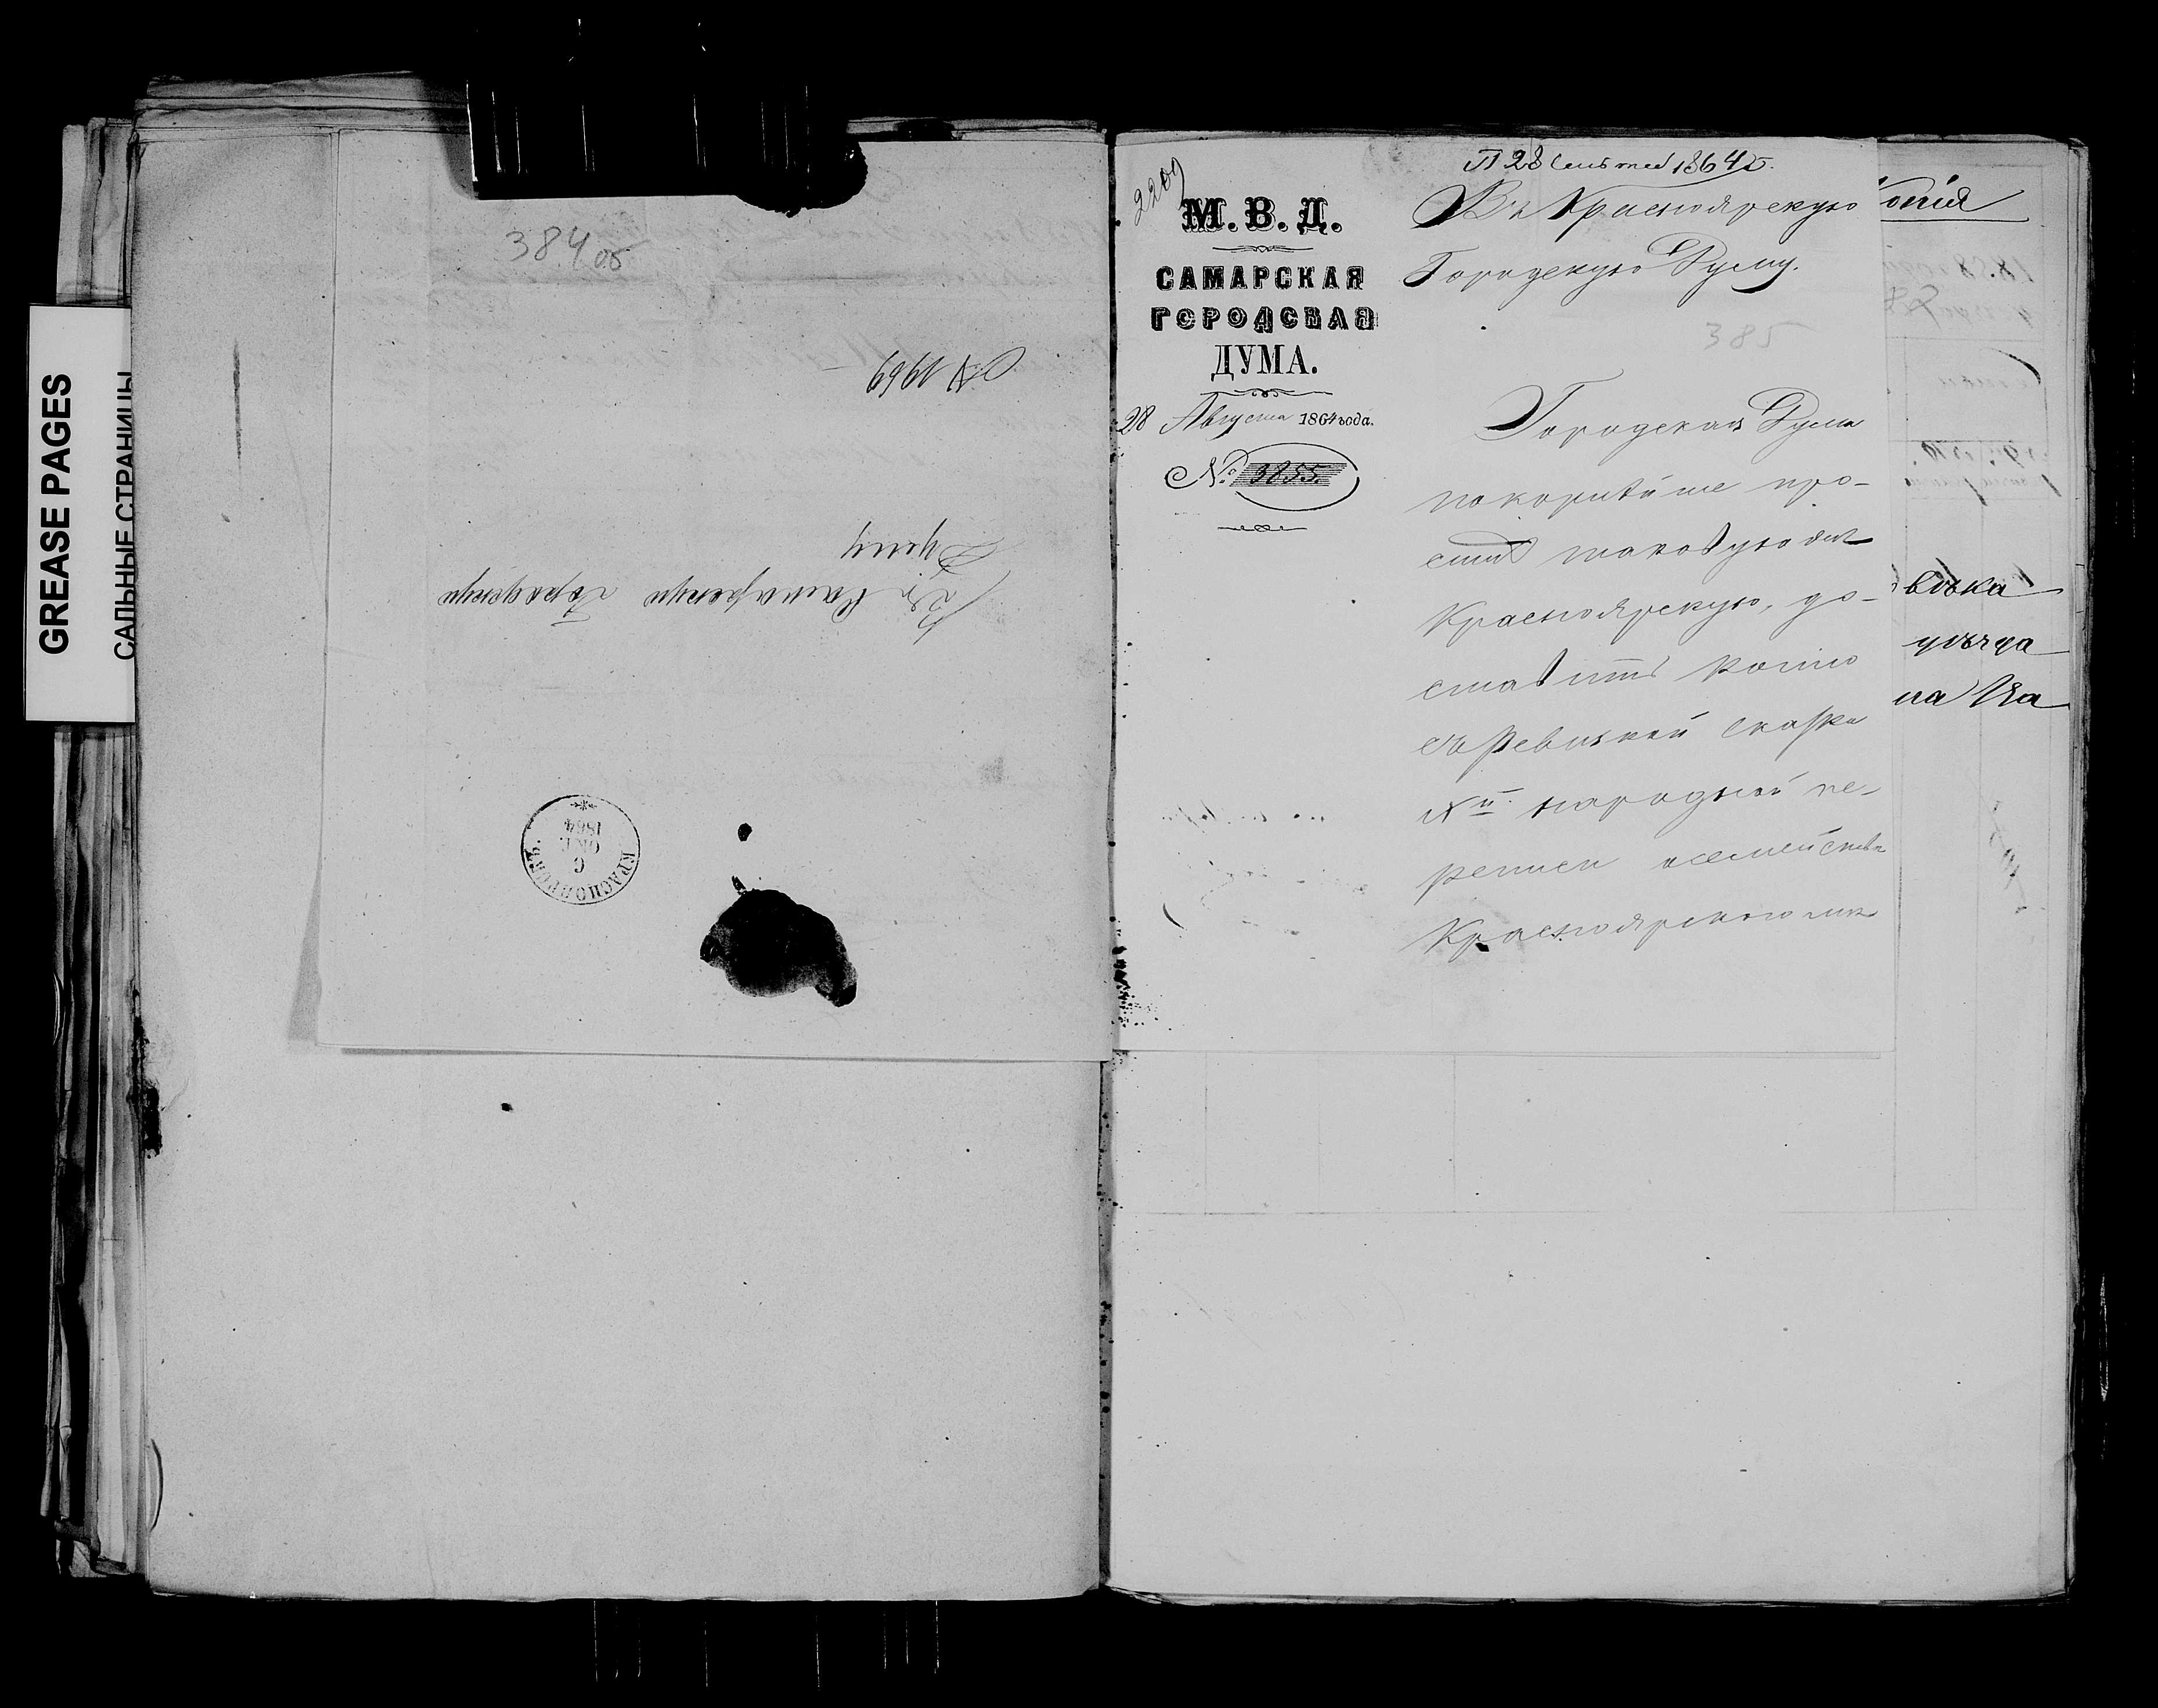 GREASE PAGES
САЛЬНЫЕ СТРАНИЦЫ
384 об
№ 1969
Въ Самарскую Городскую
Думу
КРАСНОЯРСКЪ
6
ОКТ.
1864
2209
П 28 Сентяб 1864 г.
М. В. Д.
САМАРСКАЯ
ГОРОДСКАЯ
ДУМА.
28 Августа 1864 года.
№ 3855.
Въ Красноярскую
Городскую Думу.
385
Городская Дума
покорнѣйше про-
ситъ таковую же
Красноярскую, до-
ставить копію
съ Ревизкой сказки
Х й народной пе-
реписи о семействѣ
Красноярского
опія
вовка
уѣзда
на